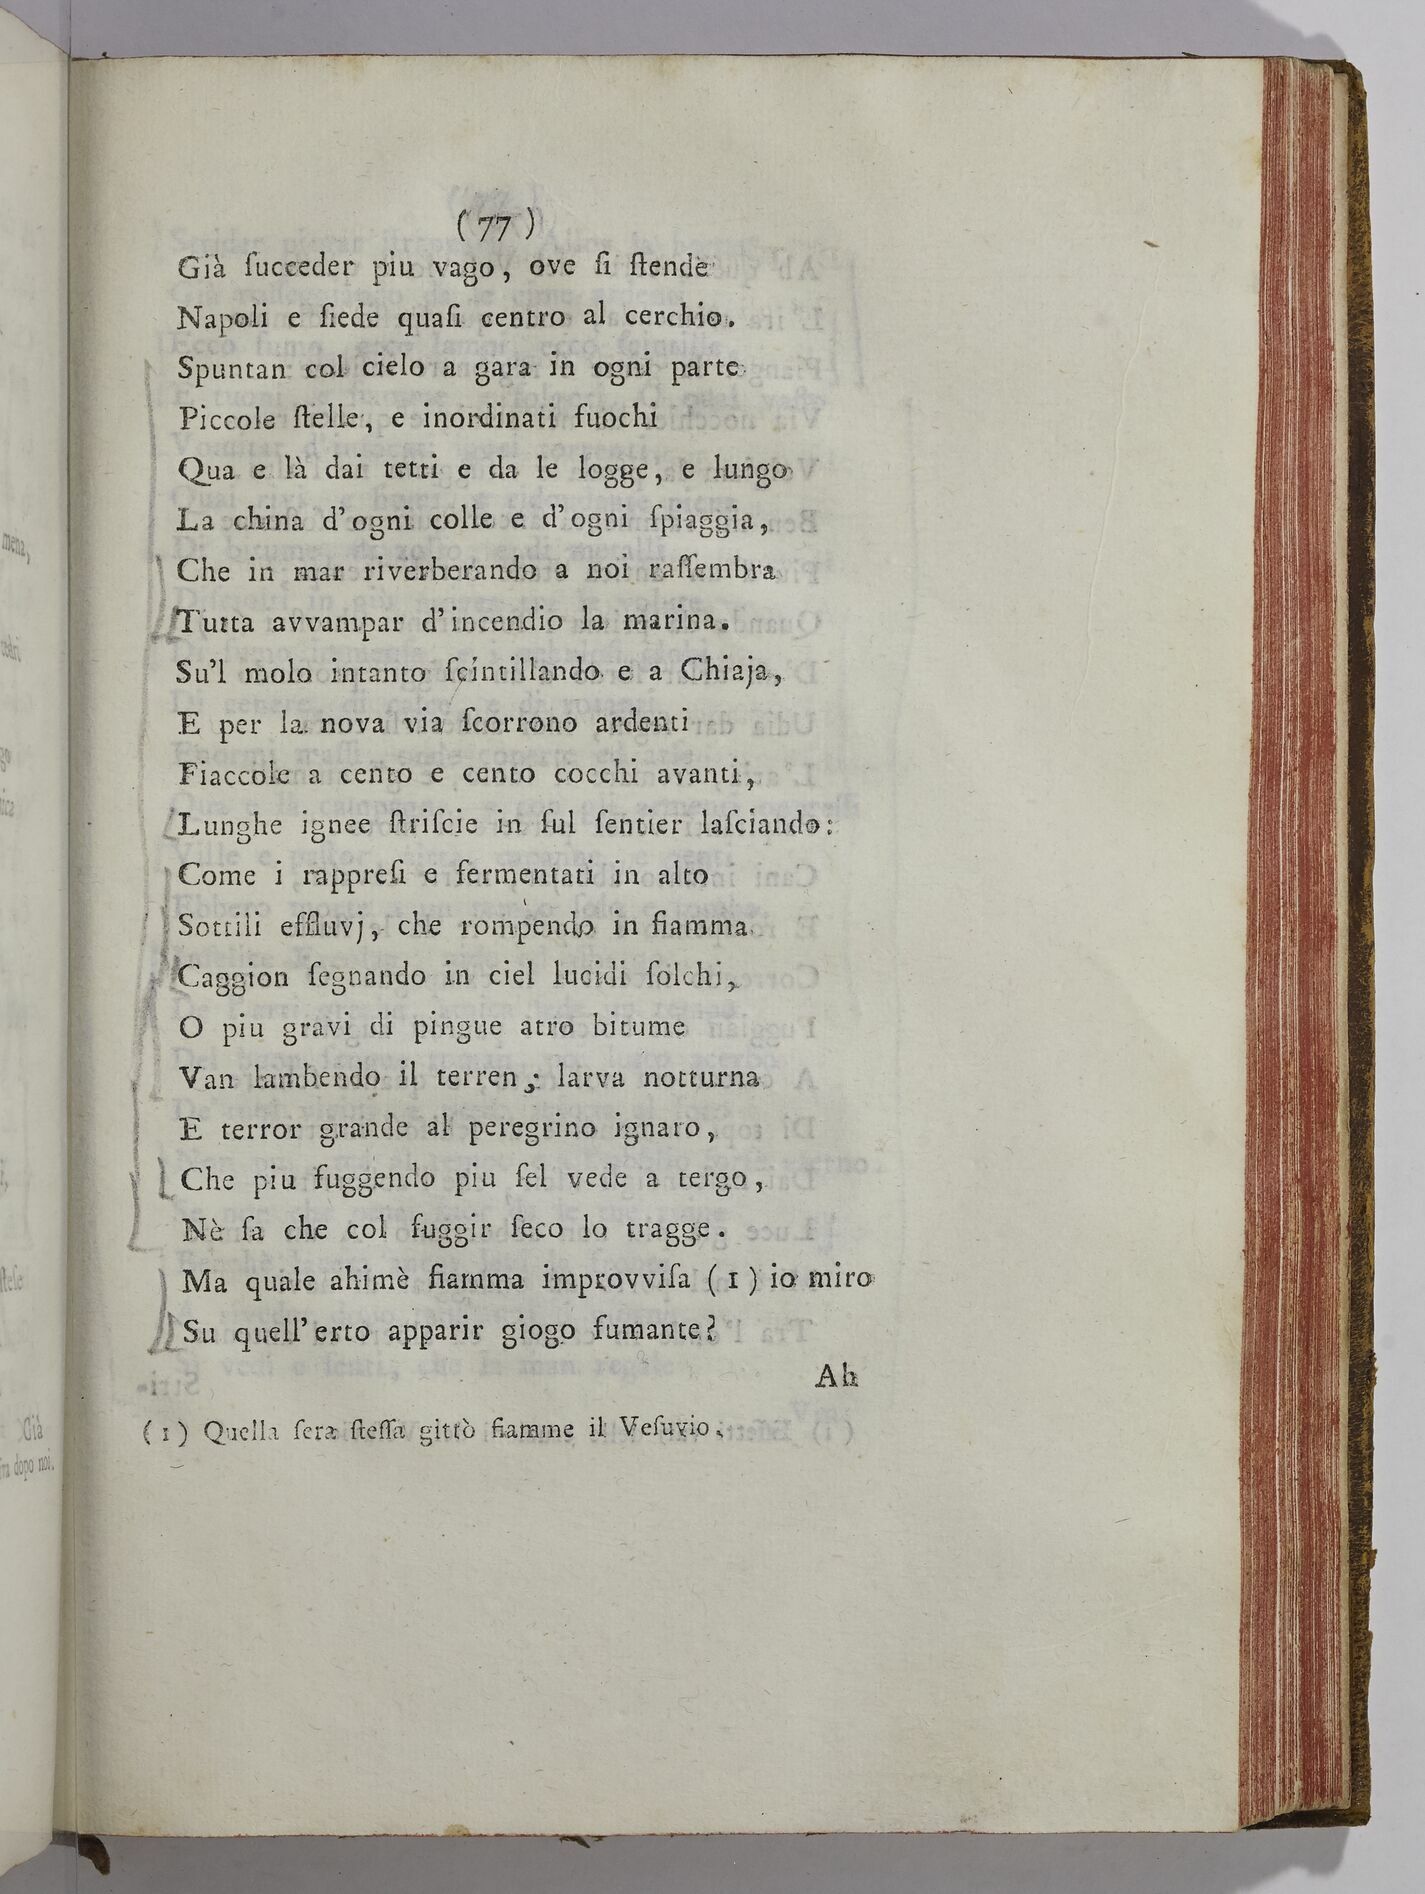 (77)
Già ſucceder piu vago, ove ſi ſtende
Napoli e ſiede quaſi centro al cerchio.
Spuntan col cielo a gara in ogni parte
Piccole ſtelle, e inordinati fuochi
Qua e là dai tetti e da le logge, e lungo
La china d'ogni colle e d'ogni ſpiaggia,
Che in mar riverberando a noi raſſembra
Tutta avvampar d'incendio la marina.
Su'l molo intanto ſcintillando e a Chiaja,
E per la nova via ſcorrono ardenti
Fiaccole a cento e cento cocchi avanti,
Lunghe ignee ſtriſcie in ſul ſentier laſciando:
Come i rappreſi e fermentati in alto
Sottili effluvj, che rompendo in fiamma
Caggion ſegnando in ciel lucidi ſolchi,
O piu gravi di pingue atro bitume
Van lambendo il terren; larva notturna
E terror grande al peregrino ignaro,
Che piu fuggendo piu ſel vede a tergo,
Nè ſa che col fuggir ſeco lo tragge.
Ma quale ahimè fiamma improvviſa (1) io miro
Su quell'erto apparir giogo fumante?
Ah
(1) Quella ſera ſteſſa gittò fiamme il Veſuvio.